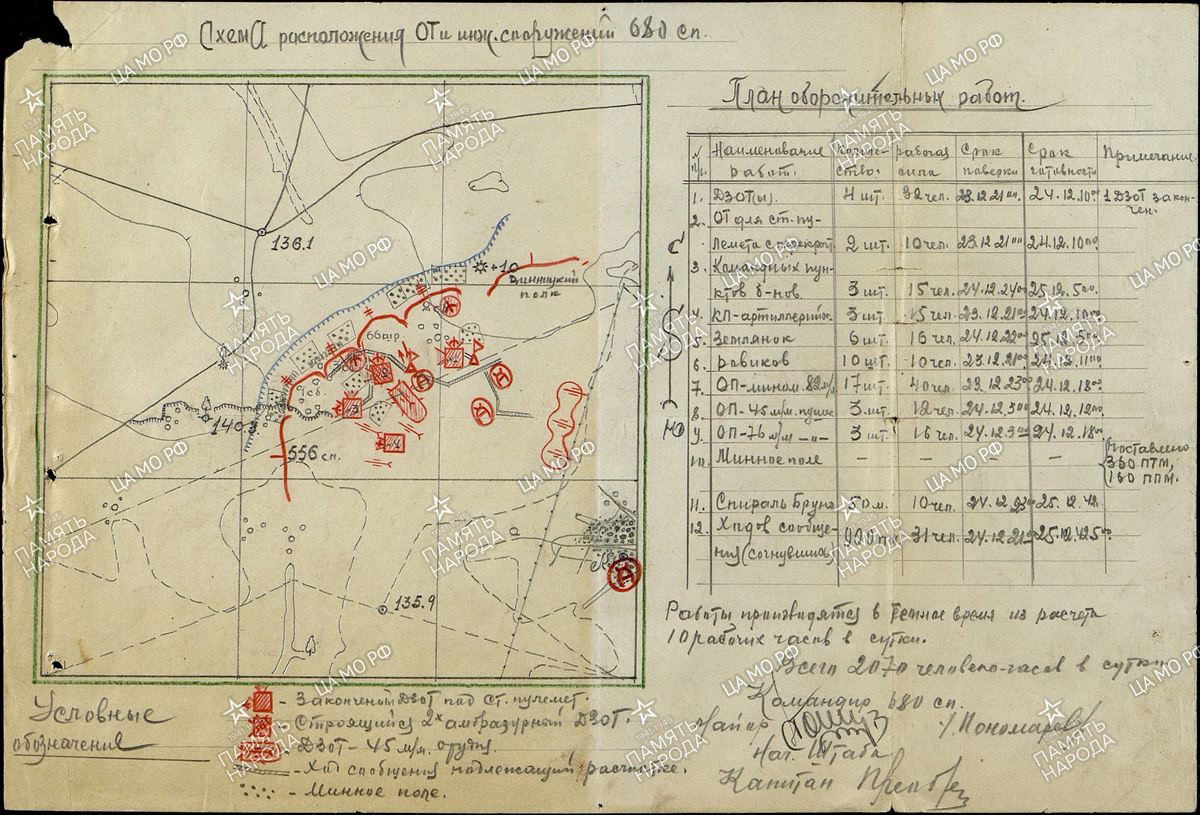 Схема расположения ОТ и инж. сооружений 680 сп.
136.1
+1.0
Винницкий
полк
66шр
сб.
140.
556 сп.
135.9
С
Ю
План оборонительных работ.
№ пп. Наименование работ. Количество. рабочая сила Срок поверки Срок готовности Примечание
1. ДЗОТ(ы). 4 шт. 32 чел. 23.12 21°° 24.12.10°° 1 ДЗОТ закончен.
2. ОТ для ст. пу-
лемета с 2 шт. 10 чел. 23.12 21°° 24.12.10°°
3. Командных пун-
ктов б-нов. 3 шт. 15 чел. 24.12.24°° 25.12.5°°
4. КП-артиллерийск. 3 шт. 15 чел. 23.12.21°° 24.12.10°°
5. Землянок 6 шт. 16 чел. 24.12.22°° 25.12.5°°
6. Ровиков 10 шт. 10 чел. 23.12.21°° 24.12.11°°
7. ОП-мином. 82 м/м 17 шт. 40 чел. 23.12 23°° 24.12.18°°
8. ОП-45 м/м. пушк 3 шт. 12 чел. 24.12.3°° 24.12.12°°
9. ОП-76 м/м -"- 3 шт. 16 чел. 24.12.3°° 24.12.18°°
10. Минное поле — — — — Поставлено 360 ПТМ, 160 ППМ.
11. Спираль Бруно 50 м. 10 чел. 24.12.23°° 25.12.42.
12. Ходов сообще-
ния (согнувшись 31 чел. 24.12 21°° 25.12.42 5°°
Работы производятся в темное время из расчета
10 рабочих часов в сутки.
Всего 2070 человеко-часов в сутки
Командир 680 сп.
Майор /Пономарев/
Нач. Штаба
Капитан
Условные
обозначения
- Законченый ДЗОТ под ст. пулемет.
- Строящийся 2х амбразурный ДЗОТ.
- ДЗОТ - 45 м/м. орудия.
- Ход сообщения надлежащий расчистке.
- Минное поле.
ЦА МО РФ
ПАМЯТЬ
НАРОДА
1941-1945